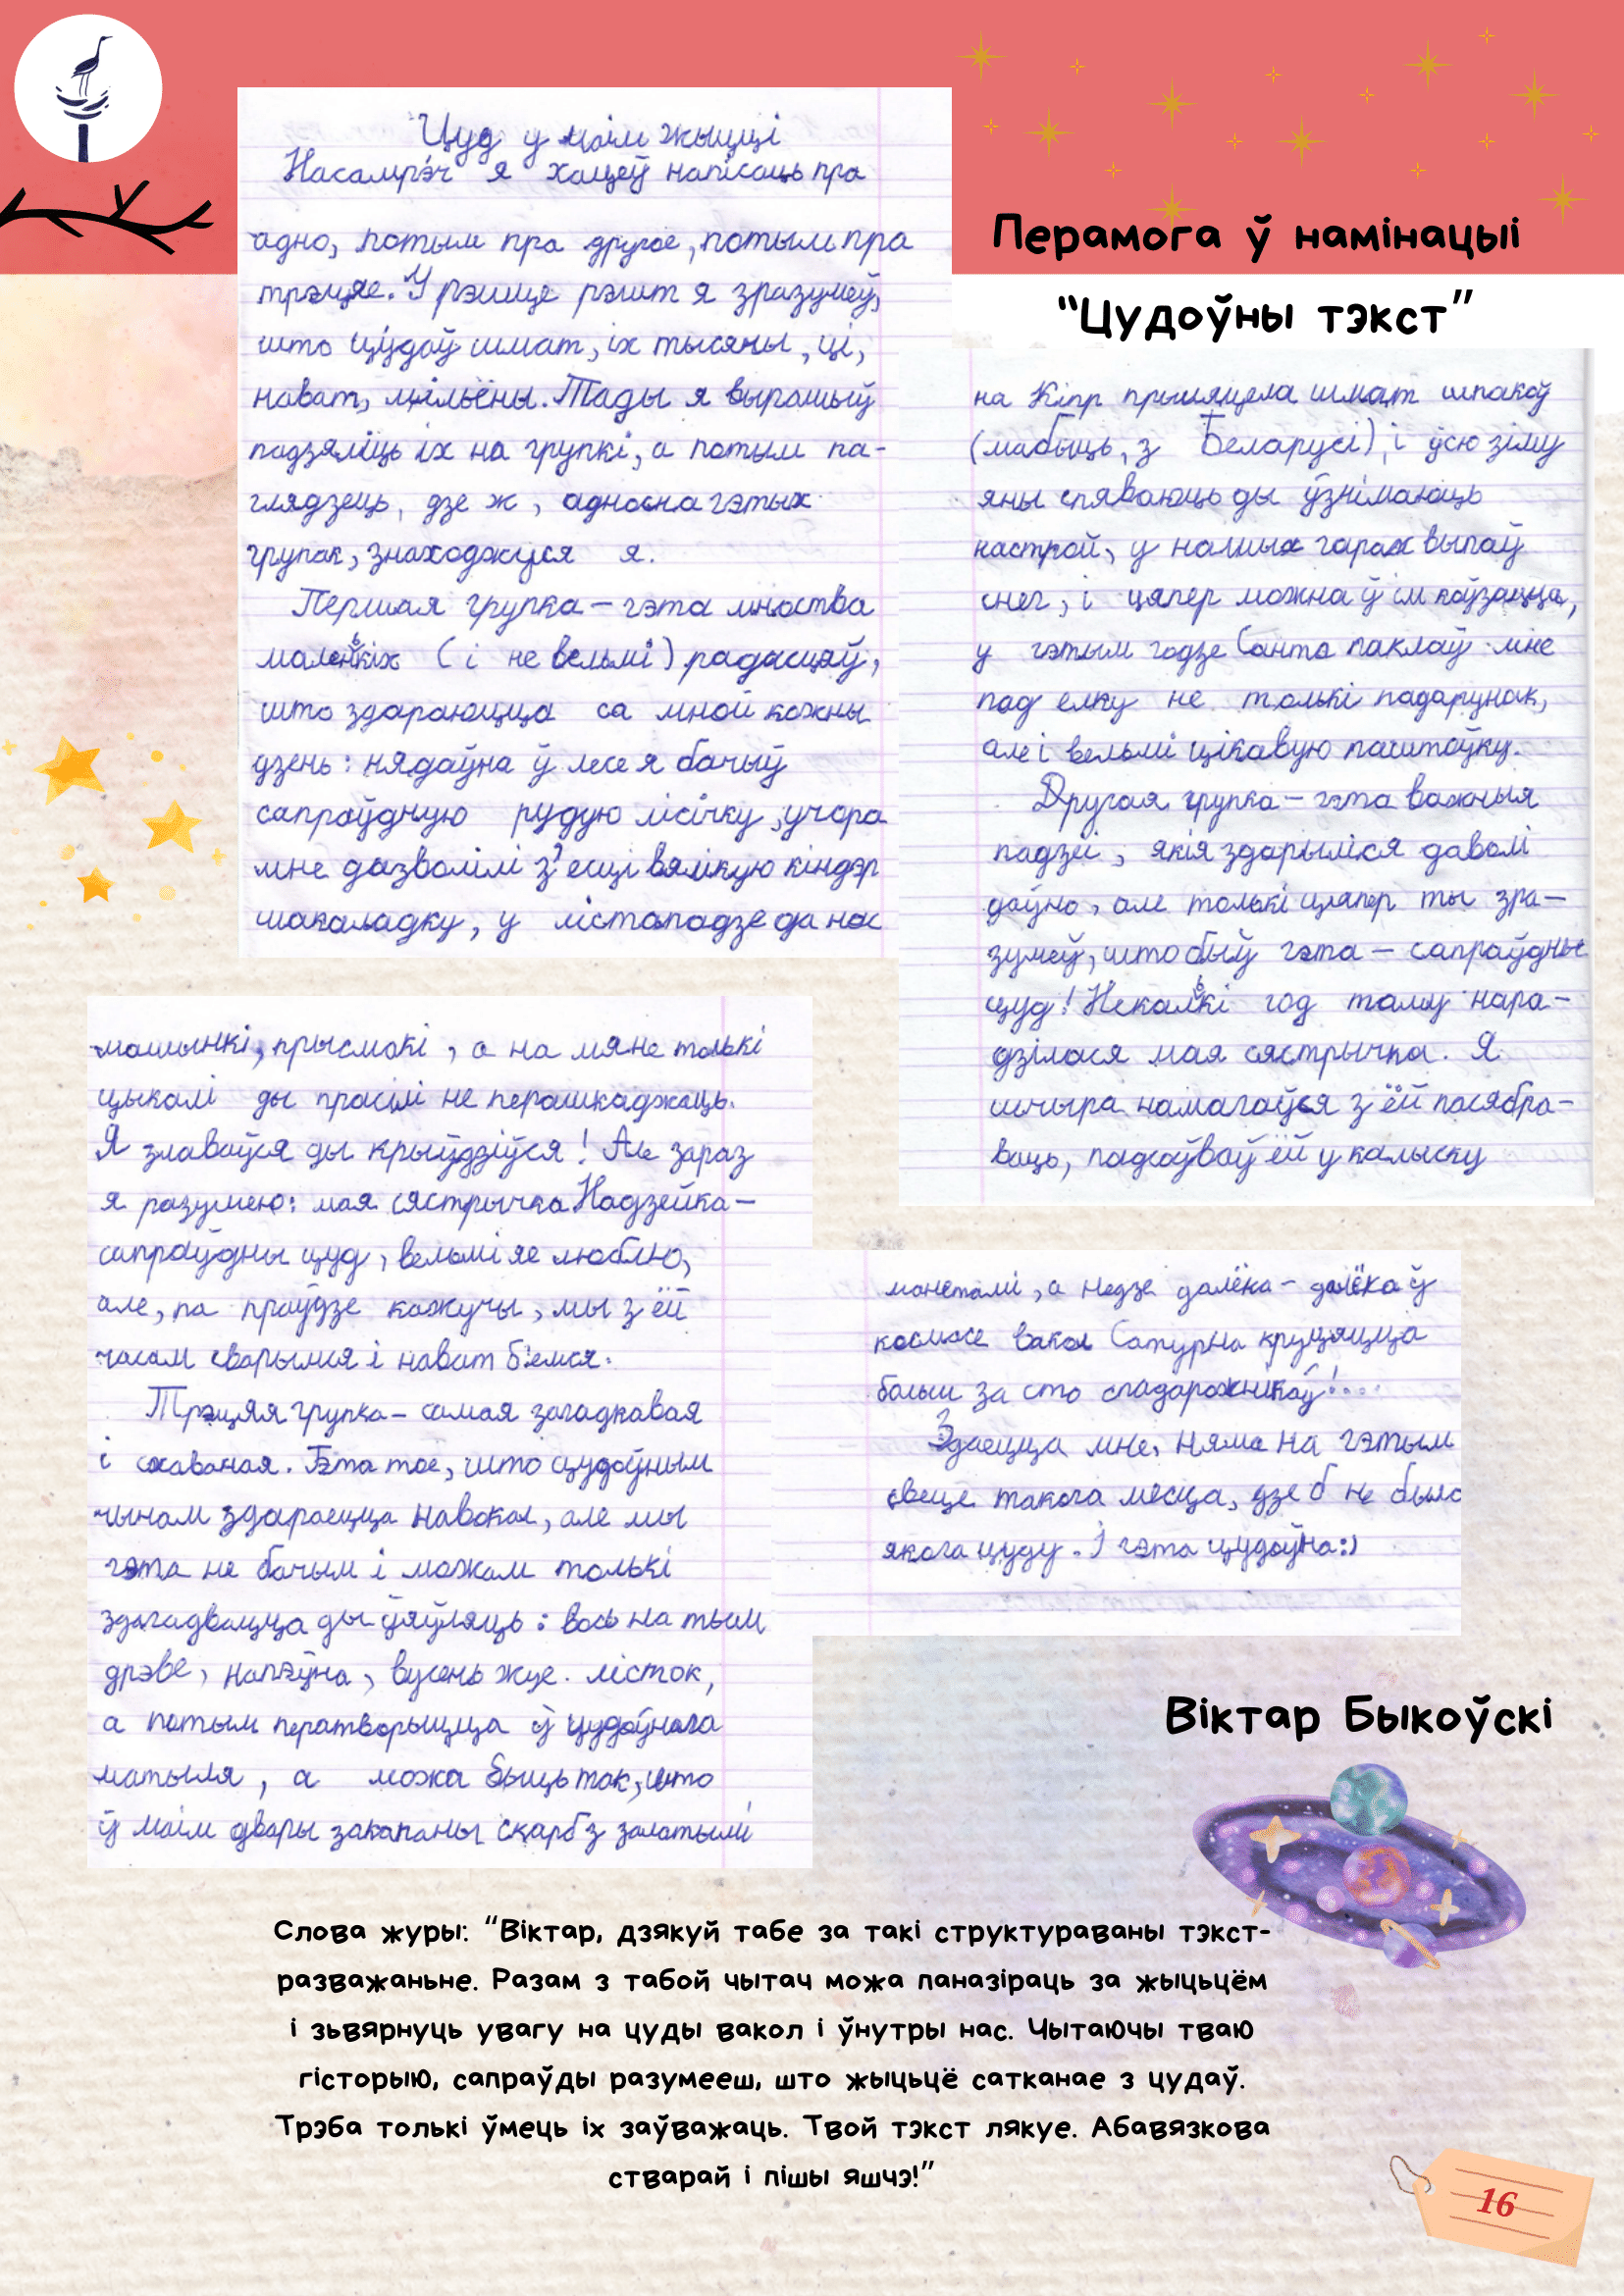 Перамога ў намінацыі
“Цудоўны тэкст”
Цуд у маім жыцці
Насамрэч я хацеў напісаць пра
адно, потым пра другое, потым пра
трэцяе. У рэшце рэшт я зразумеў,
што цудаў шмат, іх тысячы, ці,
нават, мільёны. Тады я вырашыў
падзяліць іх на групкі, а потым па-
глядзець, дзе ж, адносна гэтых
групак, знаходжуся я.
Першая групка – гэта мноства
маленькіх (і не вельмі) радасцяў,
што здараюцца са мной кожны
дзень: нядаўна ў лесе я бачыў
сапраўдную рудую лісічку, учора
мне дазволілі з'есці вялікую кіндэр
шакаладку, у лістападзе да нас
на Кіпр прыляцела шмат шпакоў
(мабыць, з Беларусі), і ўсю зіму
яны спяваюць ды ўзнімаюць
настрой, у нашых гарах выпаў
снег, і цяпер можна ў ім коўзацца,
у гэтым годзе Санта паклаў мне
пад елку не толькі падарунак,
але і вельмі цікавую паштоўку.
Другая групка – гэта важныя
падзеі, якія здарыліся даволі
даўно, але толькі цяпер ты зра–
зумеў, што быў гэта – сапраўдны
цуд! Некалькі год таму нара–
дзілася мая сястрычка. Я
шчыра намагаўся з ёй пасябра–
ваць, падсоўваў ёй у калыску
машынкі, прысмакі, а на мяне толькі
цыкалі ды прасілі не перашкаджаць.
Я злаваўся ды крыўдзіўся! Але зараз
я разумею: мая сястрычка Надзейка –
сапраўдны цуд, вельмі яе люблю,
але, па праўдзе кажучы, мы з ёй
часам сварымся і нават б'емся.
Трэцяя групка – самая загадкавая
і схаваная. Гэта тое, што цудоўным
чынам здараецца навокал, але мы
гэта не бачым і можам толькі
здагадвацца ды ўяўляць: вось на тым
дрэве, напэўна, вусень жуе лісток,
а потым ператворыцца ў цудоўнага
матыля, а можа быць так, што
ў маім двары закапаны скарб з залатымі
манетамі, а недзе далёка – далёка ў
космосе вакол Сатурна круцяцца
больш за сто спадарожнікаў!...
Здаецца мне, няма на гэтым
свеце такога месца, дзе б не было
якога цуду. І гэта цудоўна:)
Віктар Быкоўскі
Слова журы: “Віктар, дзякуй табе за такі структураваны тэкст-
разважаньне. Разам з табой чытач можа паназіраць за жыцьцём
і зьвярнуць увагу на цуды вакол і ўнутры нас. Чытаючы тваю
гісторыю, сапраўды разумееш, што жыцьцё сатканае з цудаў.
Трэба толькі ўмець іх заўважаць. Твой тэкст лякуе. Абавязкова
стварай і пішы яшчэ!”
16